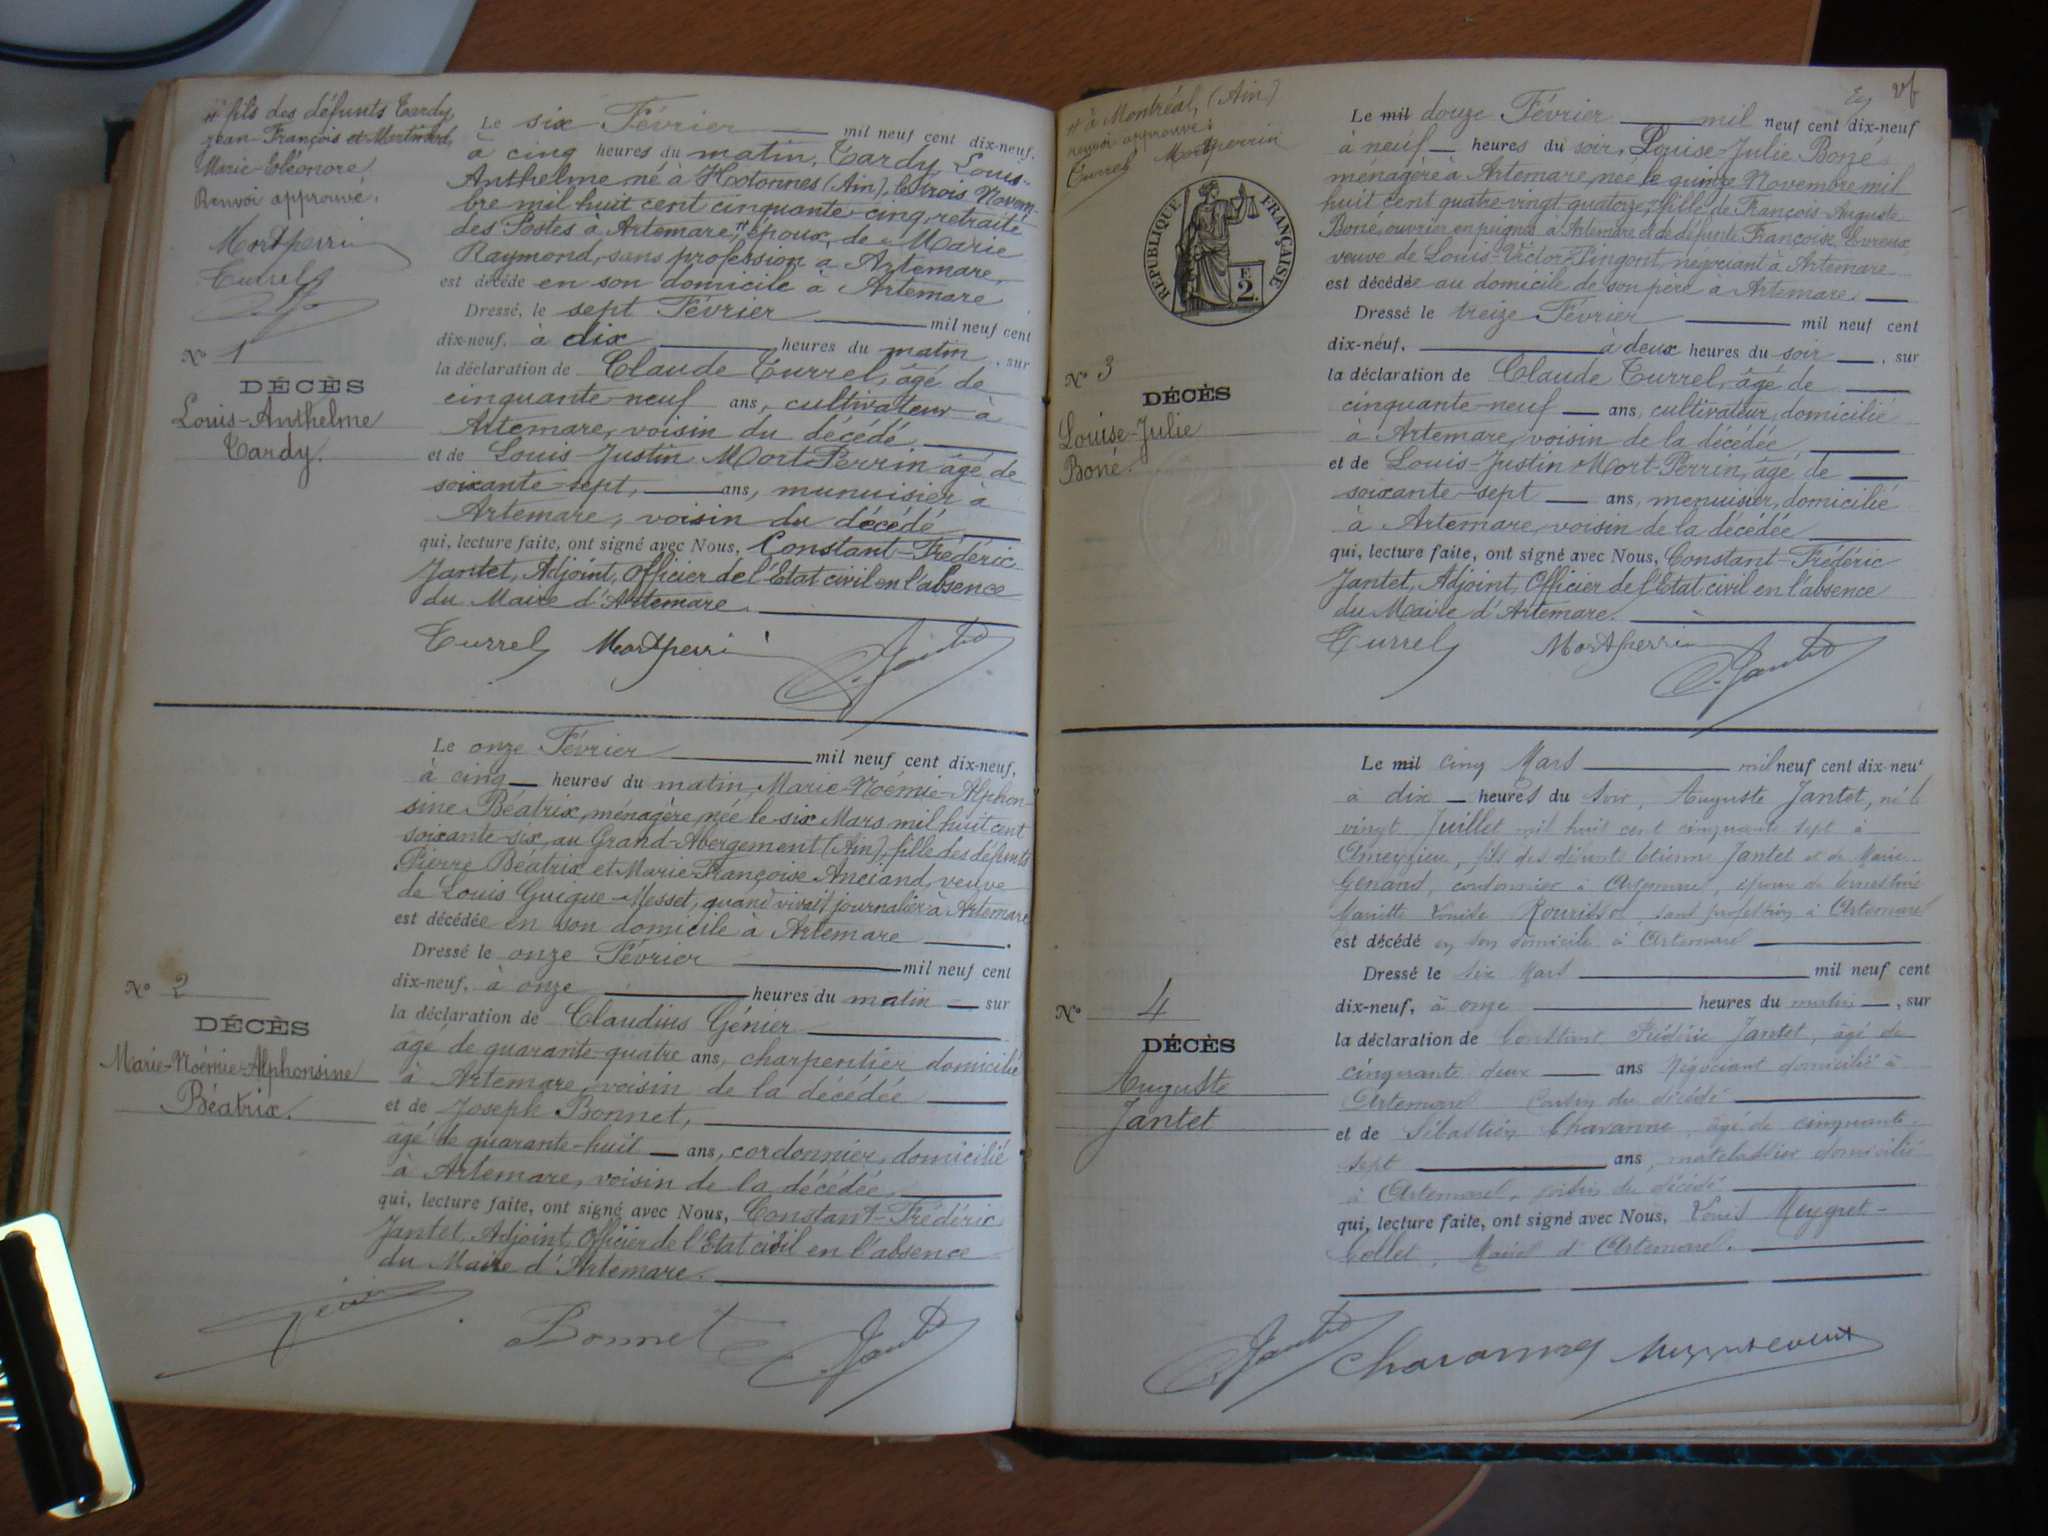 # fils des défunts Tardy
Jean-François et Martinand
Marie-Eléonore
Renvoi approuvé.
Mortperrin
Turrel
Nº 1
DÉCÈS
Louis-Anthelme
Tardy.
Le six Février mil neuf cent dix-neuf.
à cinq heures du matin, Tardy Louis-
Anthelme né à Hotonnes (Ain), le trois Novem-
bre mil huit cent cinquante-cinq, retraité
des Postes à Artemare, # époux de Marie
Raymond, sans profession à Artemare,
est décédé en son domicile à Artemare
Dressé, le sept Février mil neuf cent
dix-neuf, à dix heures du matin, sur
la déclaration de Claude Turrel, âgé de
cinquante-neuf ans, cultivateur à
Artemare, voisin du décédé
et de Louis-Justin Mort-Perrin âgé de
soixante-sept, ans, menuisier à
Artemare, voisin du décédé
qui, lecture faite, ont signé avec Nous, Constant-Frédéric
Jantet, Adjoint, Officier de l'Etat civil en l'absence
du Maire d'Artemare.
Turrel Mortperrin C. Jantet
Nº 2
DÉCÈS
Marie-Noémie-Alphonsine
Béatrix.
Le onze Février mil neuf cent dix-neuf,
à cinq heures du matin, Marie-Noémie-Alphon-
sine Béatrix, ménagère, née le six Mars mil huit cent
soixante-six, au Grand-Abergement (Ain), fille des défunts
Pierre Béatrix et Marie Françoise Anciand, veuve
de Louis Guigue-Messet, quand vivait journalier à Artemare
est décédée en son domicile à Artemare
Dressé le onze Février mil neuf cent
dix-neuf, à onze heures du matin sur
la déclaration de Claudius Génier
âgé de quarante-quatre ans, charpentier domicilié
à Artemare, voisin de la décédée
et de Joseph Bonnet,
âgé de quarante-huit ans, cordonnier, domicilié
à Artemare, voisin de la décédée,
qui, lecture faite, ont signé avec Nous, Constant-Frédéric
Jantet, Adjoint, Officier de l'Etat civil en l'absence
du Maire d'Artemare.
Génier Bonnet C. Jantet
# à Montréal, (Ain)
renvoi approuvé:
Turrel Mortperrin
RÉPUBLIQUE FRANÇAISE
F.
2.
Nº 3
DÉCÈS
Louise-Julie
Boné.
Le mil douze Février mil neuf cent dix-neuf
à neuf heures du soir, Louise-Julie Boné
ménagère à Artemare, née le quinze Novembre mil
huit cent quatre-vingt quatorze, # fille de François-Auguste
Boné, ouvrier en peignes à Artemare et de défunte Françoise Evreux
veuve de Louis-Victor Pingont, négociant à Artemare
est décédée au domicile de son père à Artemare.
Dressé le treize Février mil neuf cent
dix-neuf, à deux heures du soir, sur
la déclaration de Claude Turrel, âgé de
cinquante-neuf ans, cultivateur, domicilié
à Artemare, voisin de la décédée
et de Louis-Justin Mort-Perrin, âgé de
soixante-sept ans, menuisier, domicilié
à Artemare, voisin de la décédée
qui, lecture faite, ont signé avec Nous, Constant-Frédéric
Jantet, Adjoint, Officier de l'Etat civil en l'absence
du Maire d'Artemare.
Turrel Mortperrin C. Jantet
Nº 4
DÉCÈS
Auguste
Jantet
Le mil cinq Mars mil neuf cent dix-neuf
à dix heures du soir, Auguste Jantet, né le
vingt Juillet mil huit cent cinquante sept à
Ameyzieu, fils des défunts Etienne Jantet et de Marie
Genand, cordonnier à Artemare, époux de
Mariette Louise Rourissol, sans profession à Artemare
est décédé en son domicile à Artemare
Dressé le six Mars mil neuf cent
dix-neuf, à onze heures du matin, sur
la déclaration de Constant Frédéric Jantet, âgé de
cinquante deux ans Négociant domicilié à
Artemare Cousin du décédé
et de Sébastien Chavanne, âgé de cinquante-
sept ans, matelassier domicilié
à Artemare, voisin du décédé
qui, lecture faite, ont signé avec Nous, Louis Meygret-
Collet, Maire d'Artemare.
C. Jantet Chavanne Meygretcollet